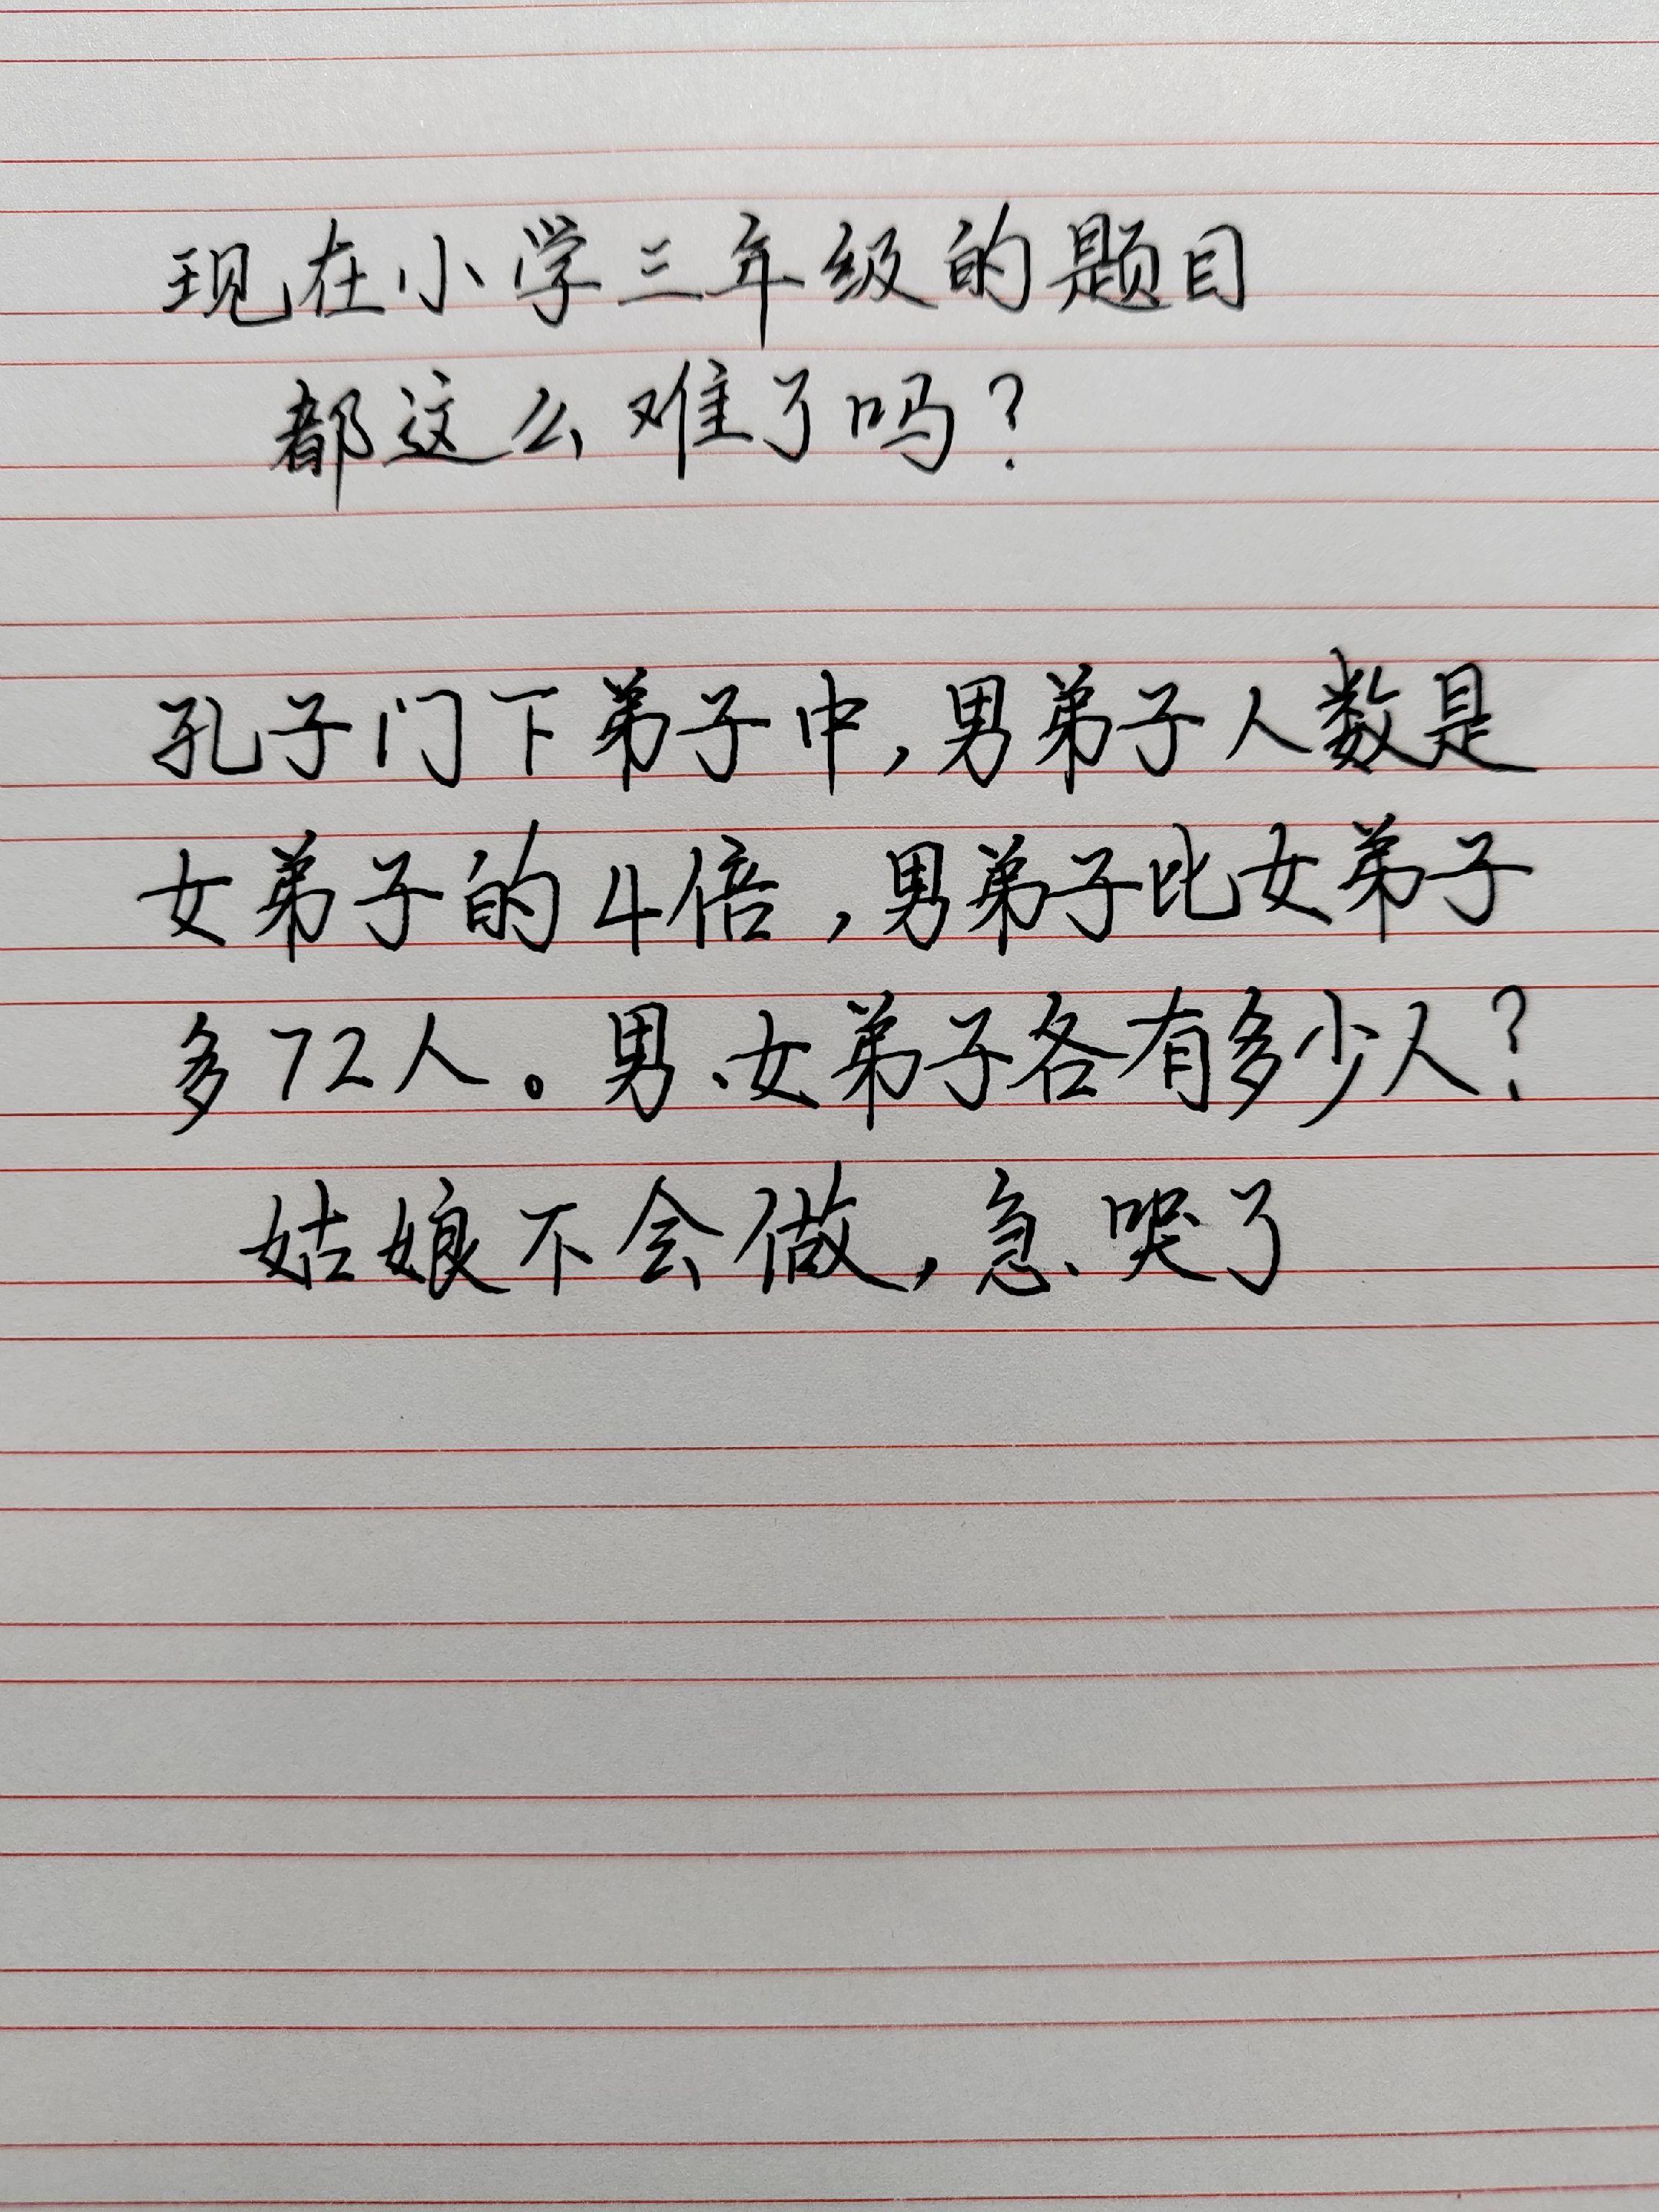 现在小学三年级的题目
都这么难了吗？
孔子门下弟子中,男弟子人数是
女弟子的4倍,男弟子比女弟子
多72人。男、女弟子各有多少人？
姑娘不会做,急哭了